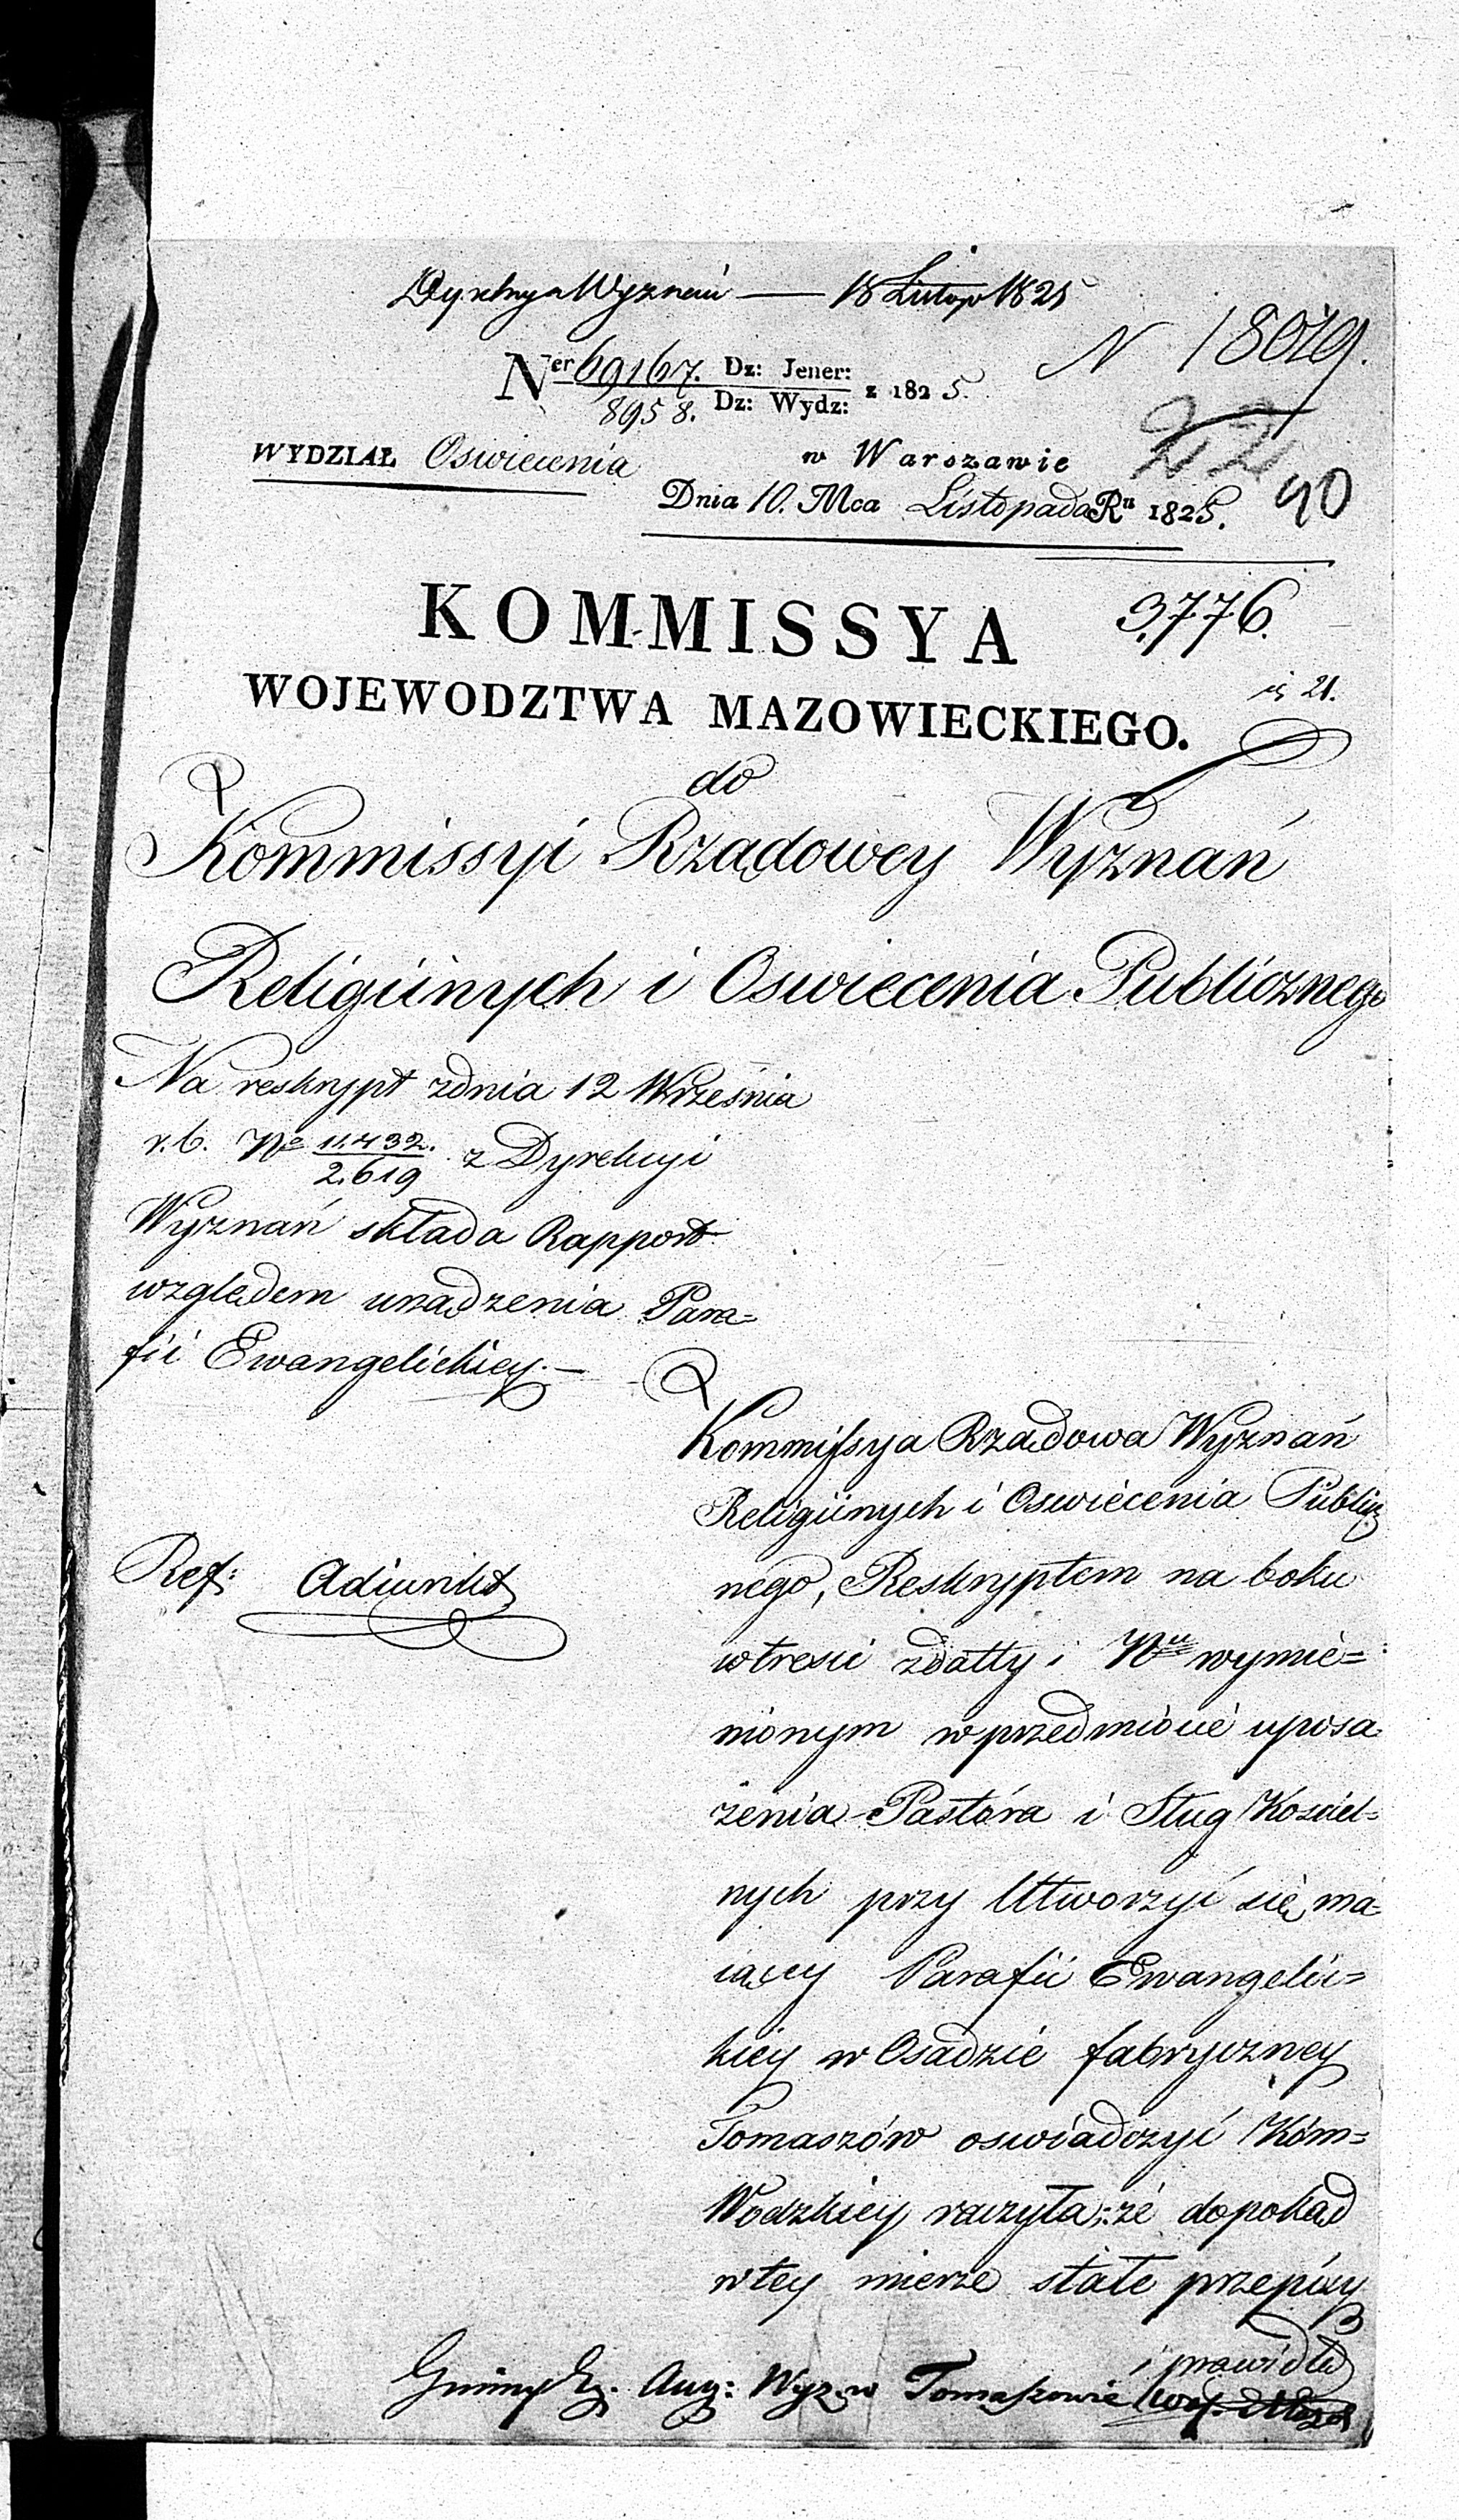 Dyrekcya Wyznań — 18 Listop 1825
N 18019.
Ner 69167. Dz: Jener: z 1825.
8958. Dz: Wydz:
22
WYDZIAŁ Oswiecenia
w Warszawie
90
Dnia 10. Mca Listopada Ru 1825.
KOMMISSYA
3,776.
WOJEWODZTWA MAZOWIECKIEGO.
21.
do
Kommissyi Rządowey Wyznań
Religiinych i Oswiecenia Publicznego
Na reskrypt zdnia 12 Września
r.b. No 11.432./2.619 z Dyrekcyi
Wyznań składa Rapport
względem urządzenia Para=
fii Ewangelickiey.—
Kommissya Rządowa Wyznań
Religiinych i Oswiecenia Publicz
Ref: Adiunkt
nego, Reskryptem na boku
wtresci zdatty i Nru wymie=
nionym w przedmiocie uposa=
żenia Pastóra i Sług Kościel=
nych przy Utworzyć się ma=
iącey Parafii Ewangelic=
kiey w Osadzie fabryczney
Tomaszów oswiadczyć Kom=
Wodzkiey raczyła; że dopokąd
wtey mierze stałe przepisy
i prawidła
Gminy Ew. Aug: Wyz. w Tomaszowie Woj. Mazow